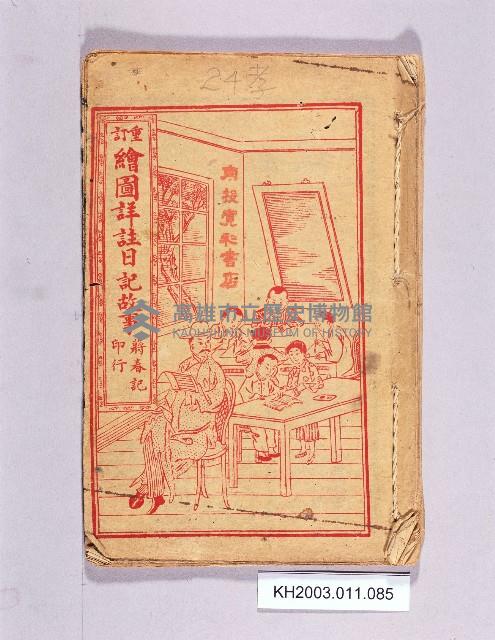 24孝
重訂
繪圖詳註日記故事
蔣春記
印行
南投寶和書店
高雄市立歷史博物館
KAOHSIUNG MUSEUM OF HISTORY
KH2003.011.085